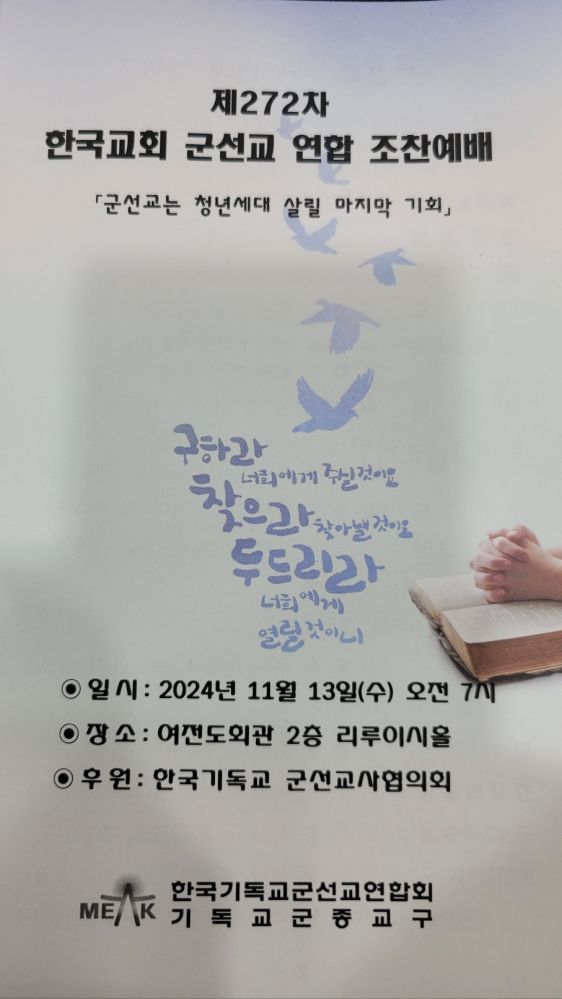 제272차
한국교회 군선교 연합 조찬예배
「군선교는 청년세대 살릴 마지막 기회」
구하라
너희에게 주실것이요
찾으라 찾아낼것이요
두드리라
너희에게
열릴것이니
◉ 일시 : 2024년 11월 13일(수) 오전 7시
◉ 장소 : 여전도회관 2층 리루이시홀
◉ 후원 : 한국기독교 군선교사협의회
MEAK 한국기독교군선교연합회
기독교군종교구